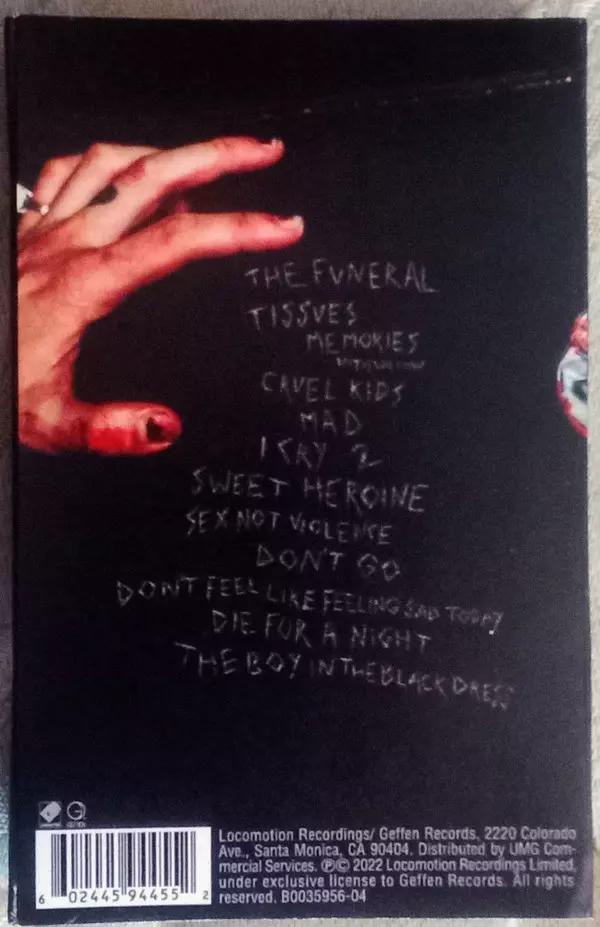 THE FUNERAL
TISSUES
MEMORIES
WITH WILLOW
CRUEL KIDS
MAD
I CRY 2
SWEET HEROINE
SEX NOT VIOLENCE
DON'T GO
DON'T FEEL LIKE FEELING SAD TODAY
DIE FOR A NIGHT
THE BOY IN THE BLACK DRESS
Locomotion Recordings/ Geffen Records, 2220 Colorado
Ave., Santa Monica, CA 90404. Distributed by UMG Com-
mercial Services. ℗© 2022 Locomotion Recordings Limited,
under exclusive license to Geffen Records. All rights
reserved. B0035956-04
6 02445 94455 2